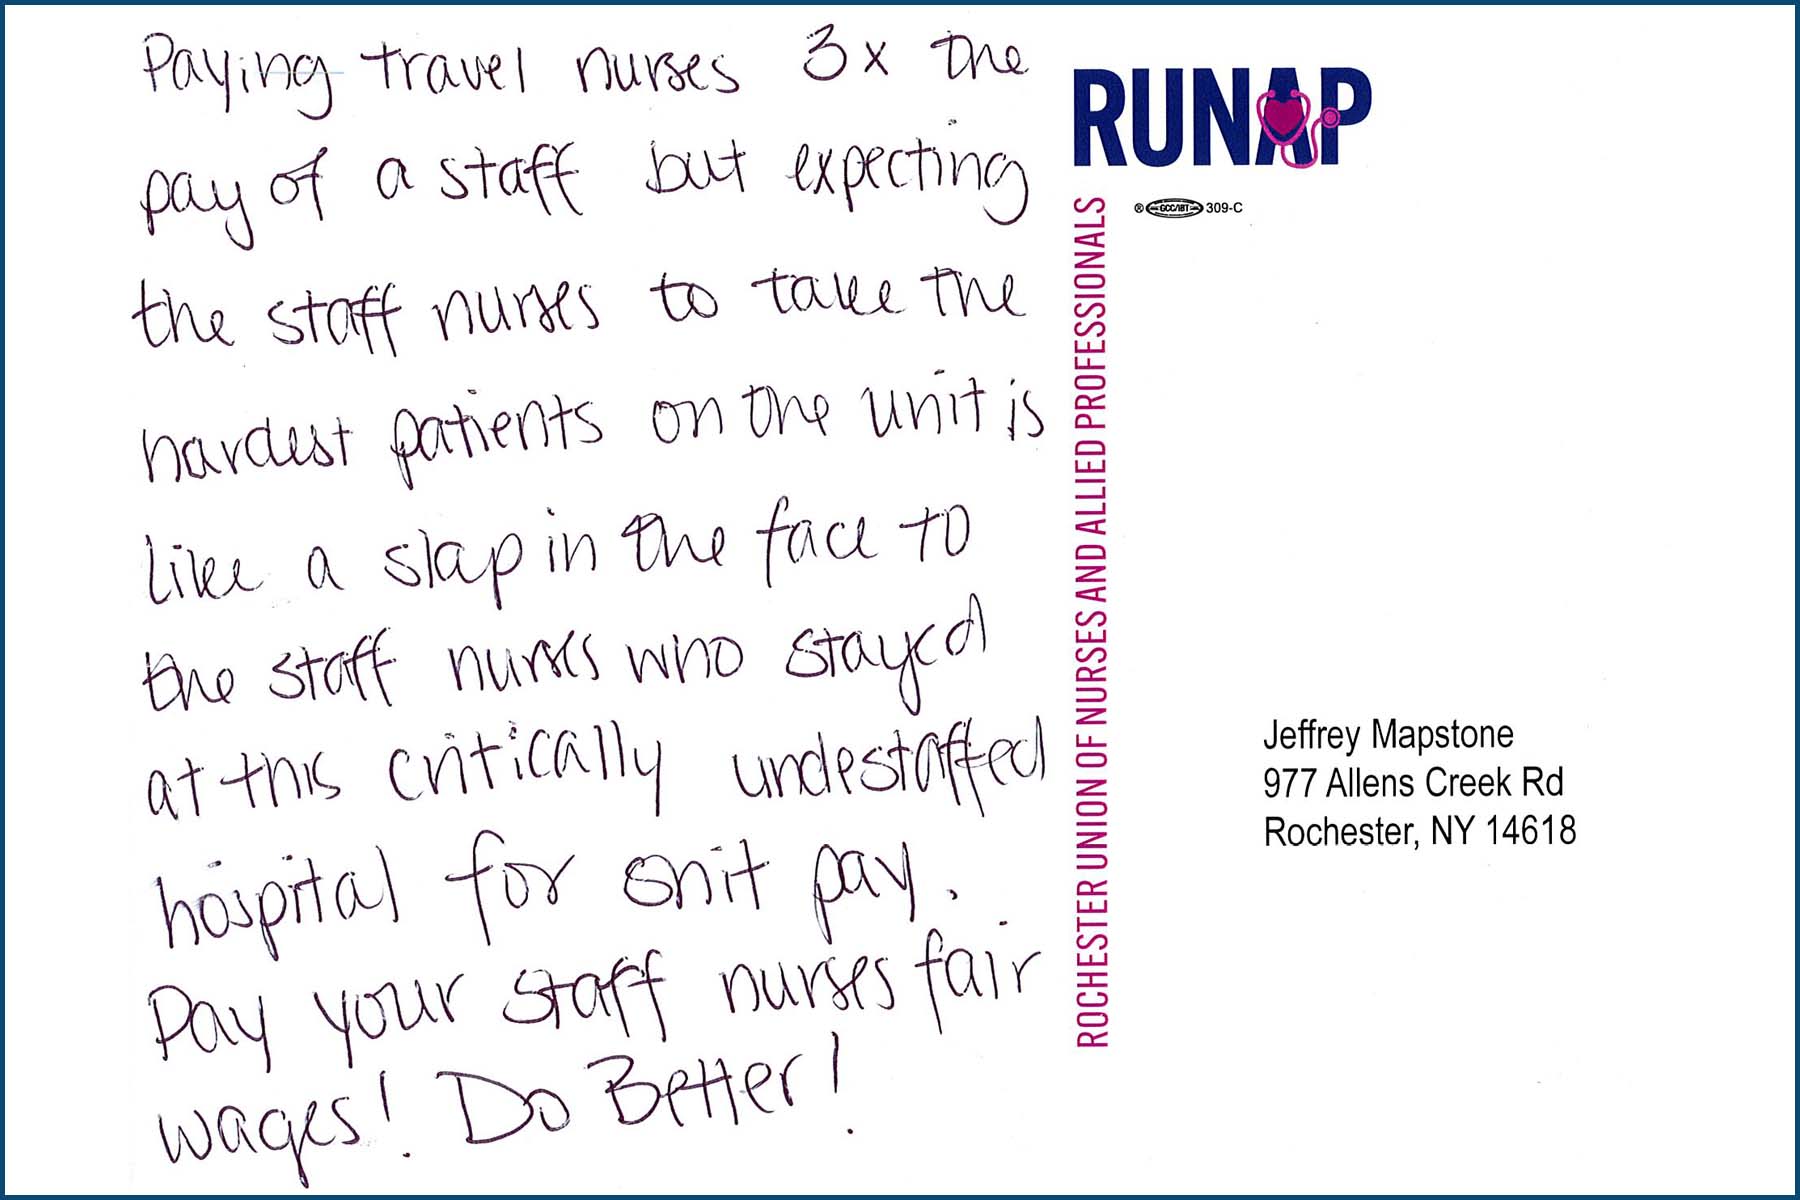 Paying travel nurses 3x the
pay of a staff but expecting
the staff nurses to take the
hardest patients on the unit is
like a slap in the face to
the staff nurses who stayed
at this critically undestaffed
hospital for shit pay.
Pay your staff nurses fair
wages! Do Better!
RUNAP
® GCC/IBT 309-C
ROCHESTER UNION OF NURSES AND ALLIED PROFESSIONALS
Jeffrey Mapstone
977 Allens Creek Rd
Rochester, NY 14618